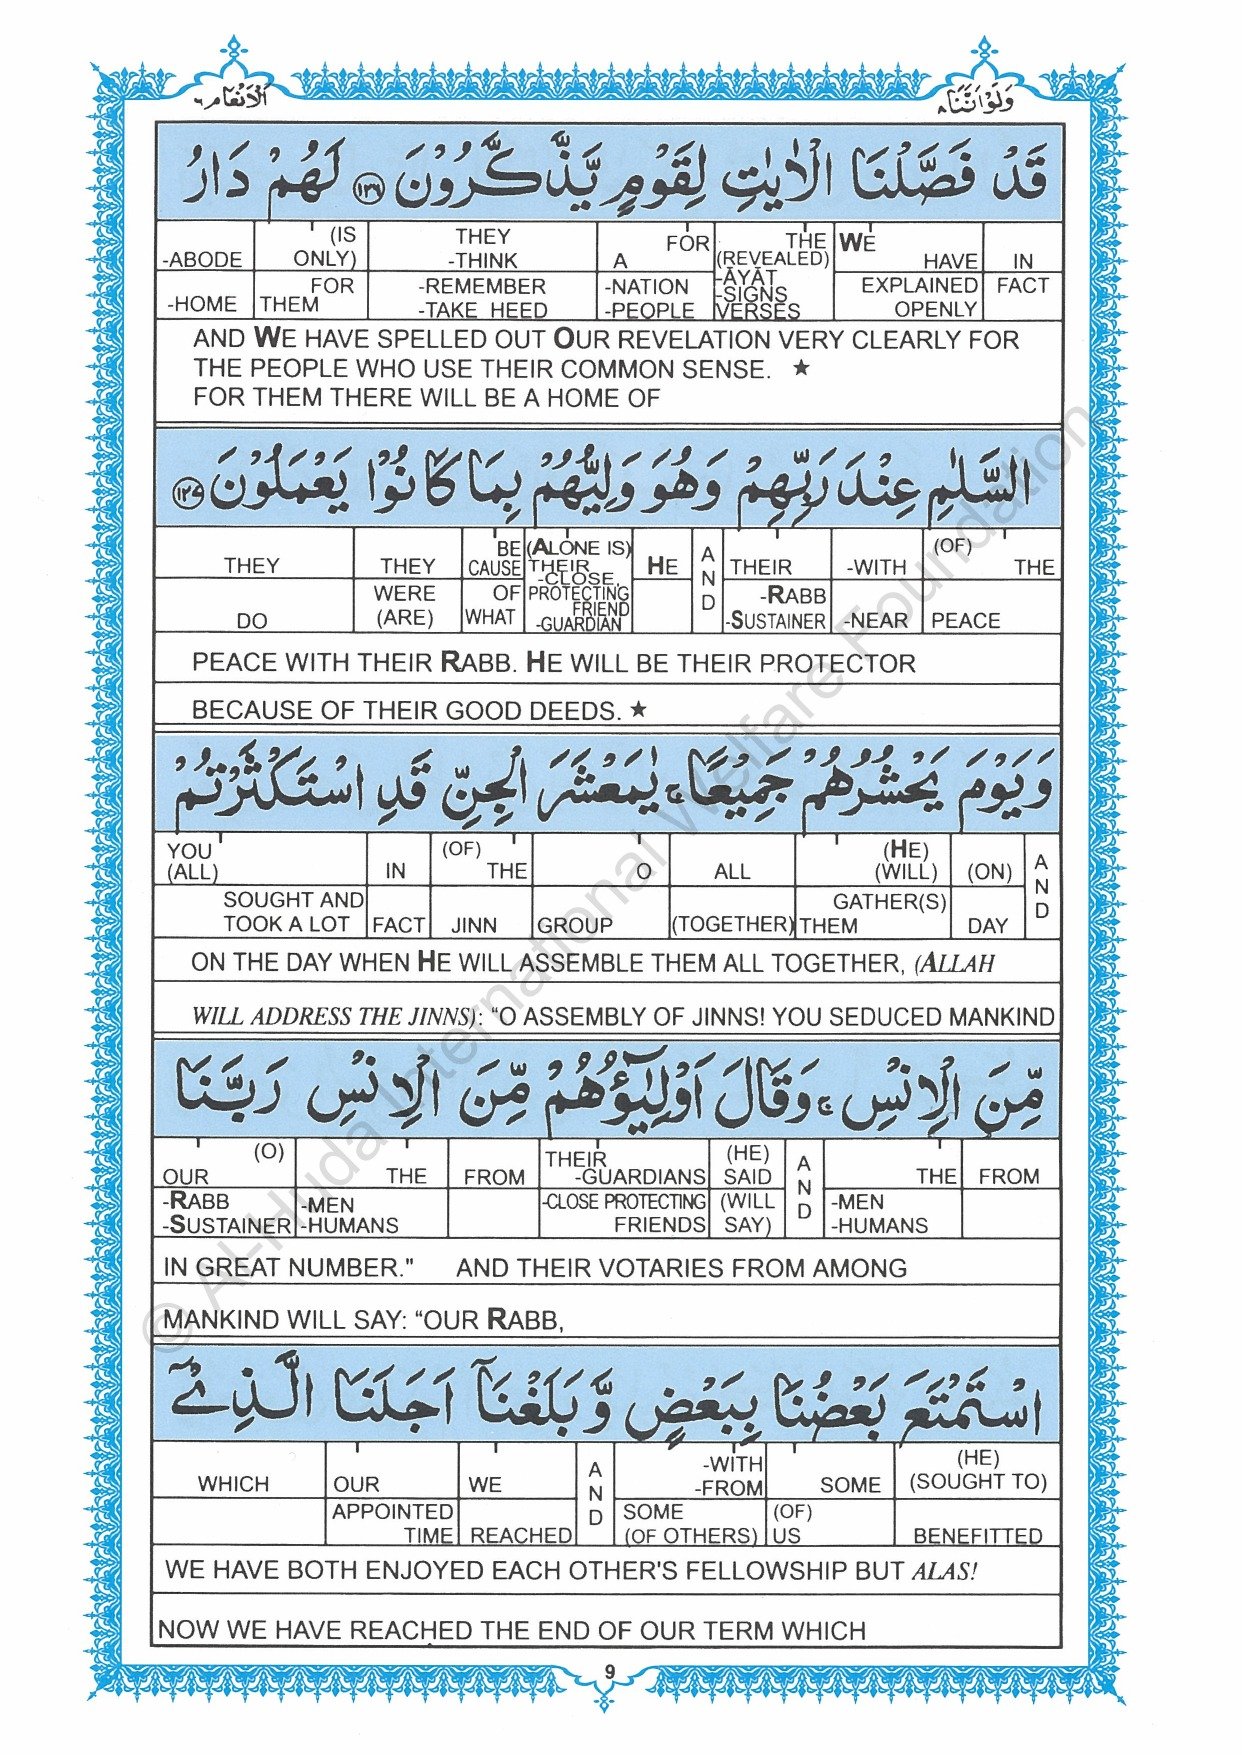 وَلَوْ اَنَّنَا ٨
اَلْاَنْعَام ٦
قَدْ فَصَّلْنَا الْاٰيٰتِ لِقَوْمٍ يَّذَّكَّرُوْنَ ١٢٦ لَهُمْ دَارُ
-ABODE (IS ONLY) THEY -THINK A FOR THE (REVEALED) WE HAVE IN
-HOME FOR THEM -REMEMBER -TAKE HEED -NATION -PEOPLE -ĀYĀT -SIGNS VERSES EXPLAINED OPENLY FACT
AND WE HAVE SPELLED OUT OUR REVELATION VERY CLEARLY FOR
THE PEOPLE WHO USE THEIR COMMON SENSE. ★
FOR THEM THERE WILL BE A HOME OF
السَّلٰمِ عِنْدَ رَبِّهِمْ وَهُوَ وَلِيُّهُمْ بِمَا كَانُوْا يَعْمَلُوْنَ ١٢٧
THEY THEY BE CAUSE (ALONE IS) THEIR -CLOSE, HE AND THEIR -WITH (OF) THE
DO WERE (ARE) OF WHAT PROTECTING FRIEND -GUARDIAN -RABB -SUSTAINER -NEAR PEACE
PEACE WITH THEIR RABB. HE WILL BE THEIR PROTECTOR
BECAUSE OF THEIR GOOD DEEDS. ★
وَيَوْمَ يَحْشُرُهُمْ جَمِيْعًا ۚ يٰمَعْشَرَ الْجِنِّ قَدِ اسْتَكْثَرْتُمْ
YOU (ALL) IN (OF) THE O ALL (HE) (WILL) (ON) AND
SOUGHT AND TOOK A LOT FACT JINN GROUP (TOGETHER) GATHER(S) THEM DAY
ON THE DAY WHEN HE WILL ASSEMBLE THEM ALL TOGETHER, (ALLAH
WILL ADDRESS THE JINNS): “O ASSEMBLY OF JINNS! YOU SEDUCED MANKIND
مِّنَ الْاِنْسِ ۚ وَقَالَ اَوْلِيٰٓؤُهُمْ مِّنَ الْاِنْسِ رَبَّنَا
OUR (O) THE FROM THEIR -GUARDIANS (HE) SAID AND THE FROM
-RABB -SUSTAINER -MEN -HUMANS -CLOSE PROTECTING FRIENDS (WILL SAY) -MEN -HUMANS
IN GREAT NUMBER." AND THEIR VOTARIES FROM AMONG
MANKIND WILL SAY: “OUR RABB,
اسْتَمْتَعَ بَعْضُنَا بِبَعْضٍ وَّبَلَغْنَآ اَجَلَنَا الَّذِيْٓ
WHICH OUR WE AND -WITH -FROM SOME (HE) (SOUGHT TO)
APPOINTED TIME REACHED SOME (OF OTHERS) (OF) US BENEFITTED
WE HAVE BOTH ENJOYED EACH OTHER'S FELLOWSHIP BUT ALAS!
NOW WE HAVE REACHED THE END OF OUR TERM WHICH
9
© Al-Huda International Welfare Foundation